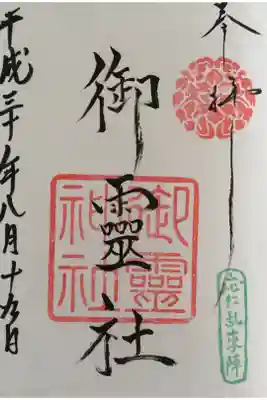 奉拝
應仁乱東陣
御靈社
御靈神社
平成三十年八月十九日